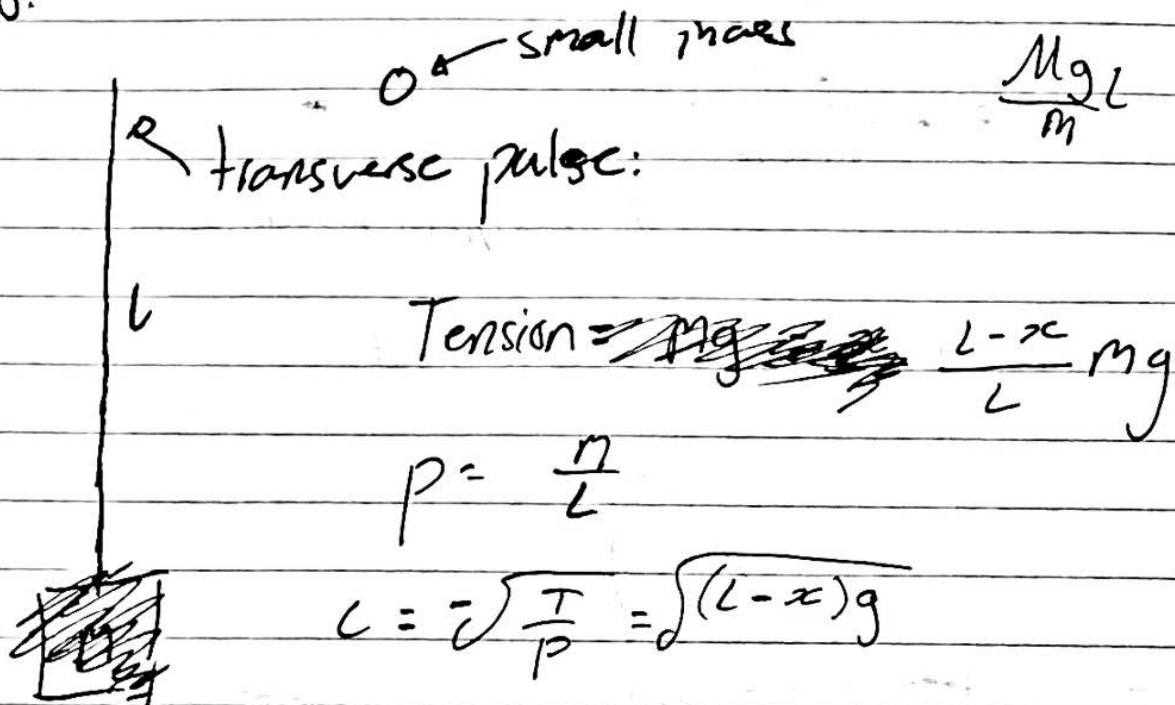 small mass
Mg/m L
transverse pulse:
L
Tension = (L-x)/L mg
ρ = m/L
c = √(T/ρ) = √((L-x)g)